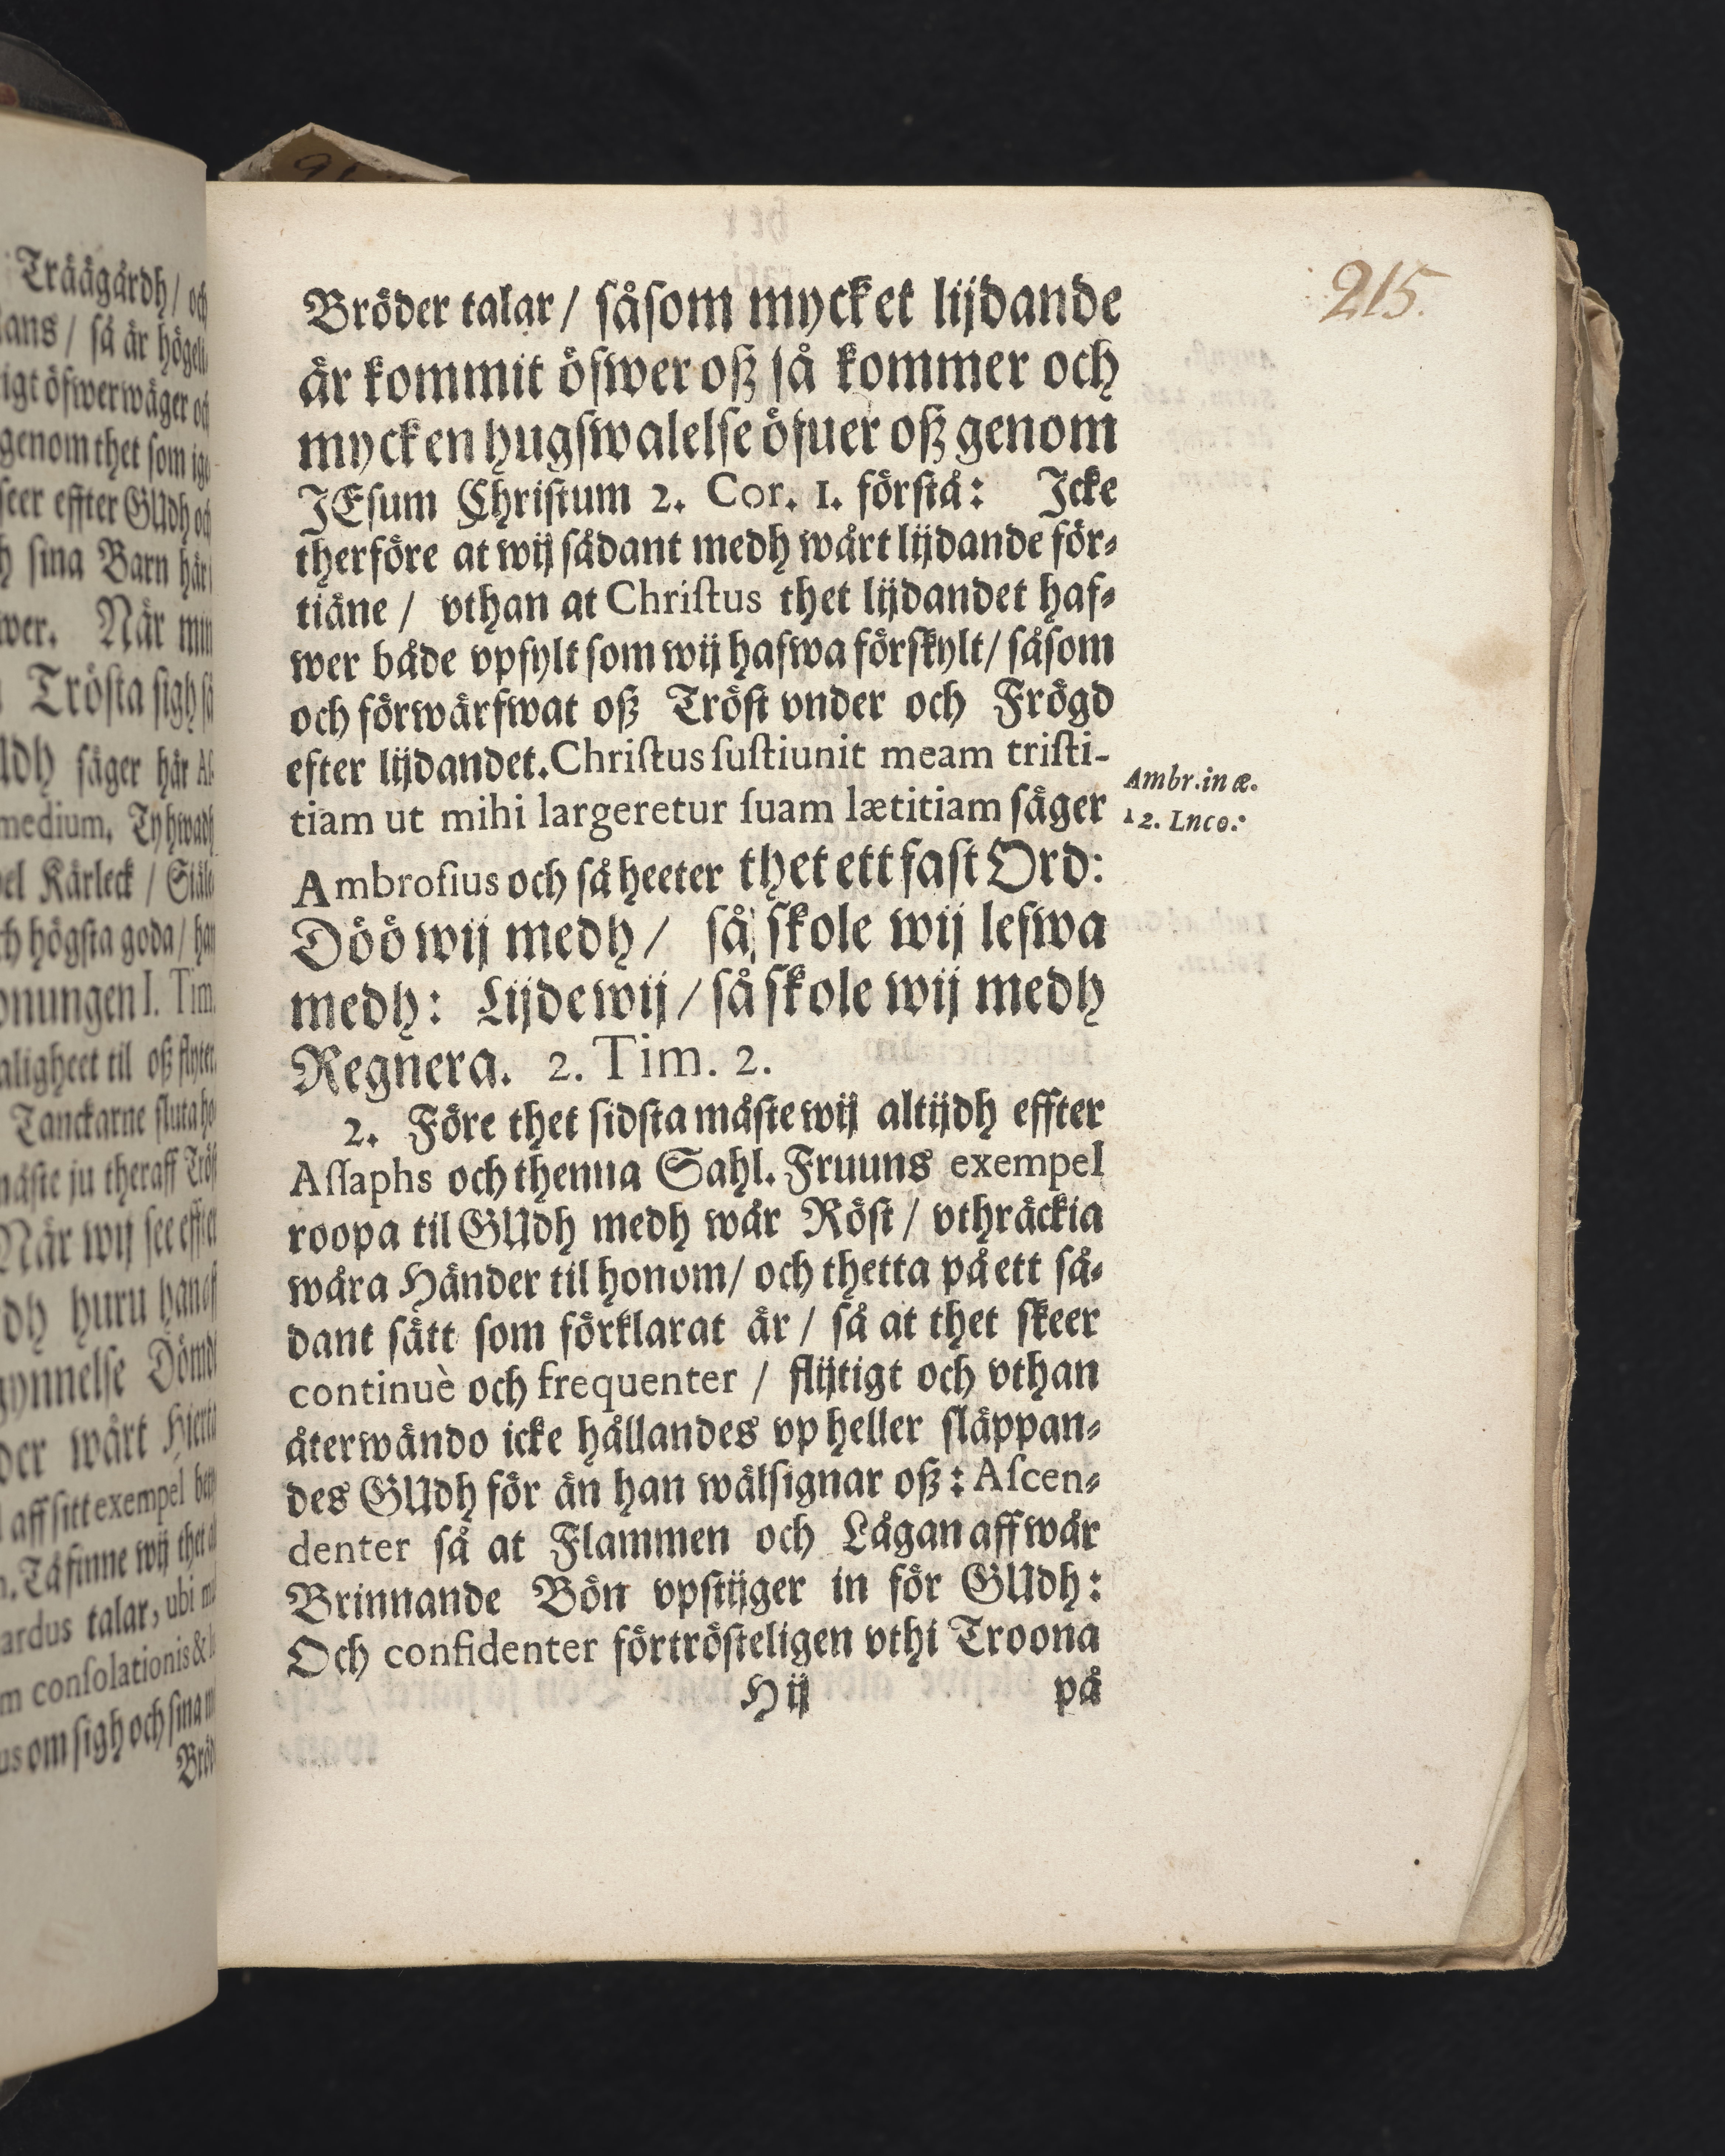 Träägårdh/ och
ans/ så är högeli
igt öfwerwäger och
genom thet som
seer effter GUdh och
sina Barn här
wer. När min
Trösta sigh så
säger här
medium, Ty hwadh
Kärleck / Siäle
högsta goda / han
onungen I. Tim.
aligheet til oß flyter.
Tanckarne sluta
måste ju theraff Tröst
När wij see effter
dh huru han
gynnelse
der wårt Hierta
aff sitt exempel
Tå finne wij thet
ardus talar, ubi
m conſolationis &
us om sigh och sina
215.
Bröder talar/ såſom mycket lijdande
är kommit öfwer oß så kommer och
mycken hugſwalelſe öfuer oß genom
JEſum Chriſtum 2. Cor. 1. förſtå: Icke
therföre at wij sådant medh wårt lijdande för⸗
tiäne / vthan at Chriſtus thet lijdandet haf⸗
wer både vpfylt ſom wij hafwa förſkylt/ ſåſom
och förwärfwat oß Tröſt vnder och Frögd
efter lijdandet. Chriſtus ſuſtiunit meam triſti-
tiam ut mihi largeretur ſuam lætitiam ſäger
Ambr. in æ.
12. Lnco:
Ambroſius och ſå heeter thet ett faſt Ord:
Döö wij medh/ ſå ſkole wij lefwa
medh: Lijde wij / ſå ſkole wij medh
Regnera. 2. Tim. 2.
2. Före thet ſidſta måſte wij altijdh effter
Aſſaphs och thenna Sahl. Fruuns exempel
roopa til GUdh medh wår Röſt / vthräckia
wåra Händer til honom/ och thetta på ett ſå⸗
dant ſätt ſom förklarat är / ſå at thet ſkeer
continuè och frequenter / flijtigt och vthan
återwändo icke hållandes vp heller ſläppan⸗
des GUdh för än han wälſignar oß: Aſcen⸗
denter ſå at Flammen och Lågan aff wår
Brinnande Bön vpſtijger in för GUdh:
Och confidenter förtröſteligen vthi Troona
H ij på